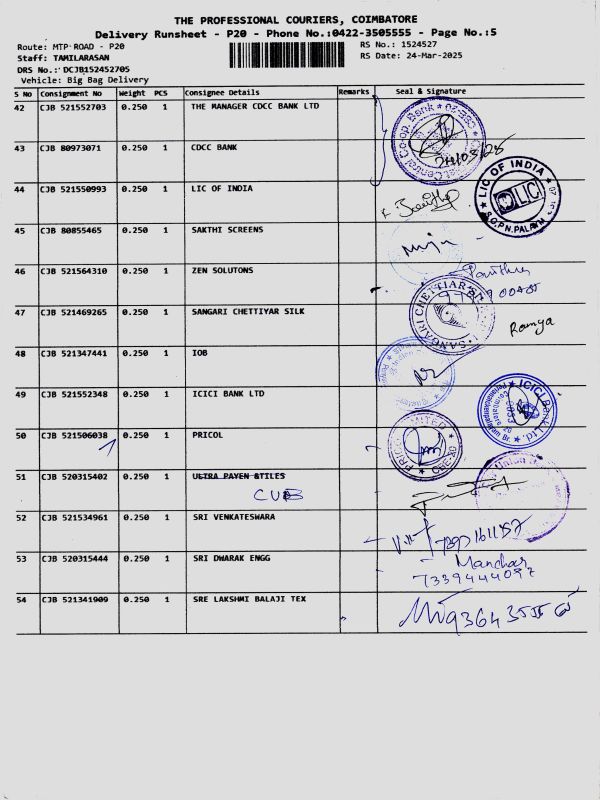 THE PROFESSIONAL COURIERS, COIMBATORE
Delivery Runsheet - P20 - Phone No.:0422-3505555 - Page No.:5
Route: MTP ROAD - P20
RS No.: 1524527
Staff: TAMILARASAN
RS Date: 24-Mar-2025
DRS No.: DCJB152452705
Vehicle: Big Bag Delivery
S No Consignment No Weight PCS Consignee Details Remarks Seal & Signature
42 CJB 521552703 0.250 1 THE MANAGER CDCC BANK LTD
43 CJB 80973071 0.250 1 CDCC BANK
44 CJB 521550993 0.250 1 LIC OF INDIA
LIC OF INDIA
LIC
45 CJB 80855465 0.250 1 SAKTHI SCREENS
46 CJB 521564310 0.250 1 ZEN SOLUTONS
47 CJB 521469265 0.250 1 SANGARI CHETTIYAR SILK
Ramya
48 CJB 521347441 0.250 1 IOB
49 CJB 521552348 0.250 1 ICICI BANK LTD
ICICI Bank Ltd.
50 CJB 521506038 0.250 1 PRICOL
51 CJB 520315402 0.250 1 ULTRA PAYEN &TILES
CUB
52 CJB 521534961 0.250 1 SRI VENKATESWARA
53 CJB 520315444 0.250 1 SRI DWARAK ENGG
Manohar
7339444097
54 CJB 521341909 0.250 1 SRE LAKSHMI BALAJI TEX